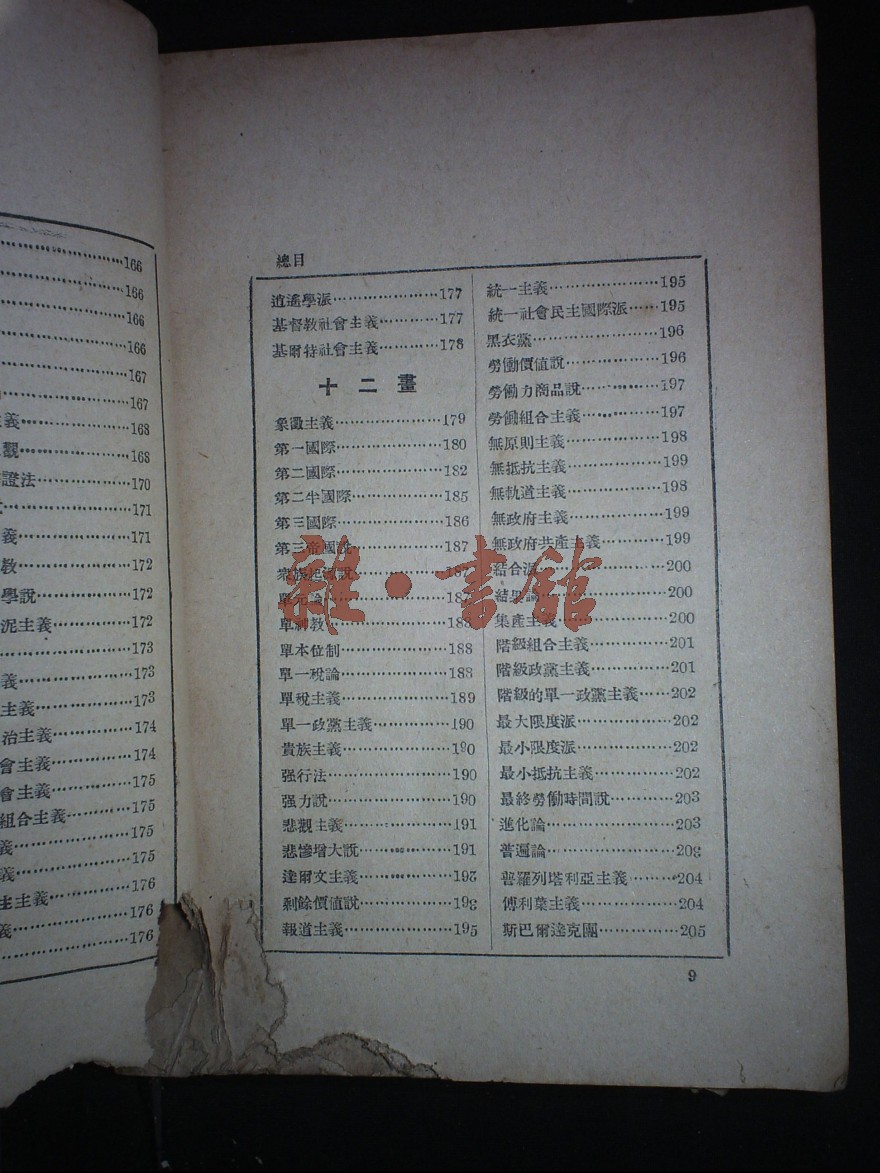 166
166
166
166
167
167
義……168
觀……168
證法……170
171
義……171
教……172
學說……172
泥主義……172
173
義……173
主義……173
治主義……174
會主義……174
會主義……175
組合主義……175
義……175
義……175
主主義……176
義……176
176
總目
逍遙學派……177
基督教社會主義……177
基爾特社會主義……178
十二畫
象徵主義……179
第一國際……180
第二國際……182
第二半國際……185
第三國際……186
第三帝國說……187
衆族起源說……187
單元論……18
單神教……188
單本位制……188
單一稅論……188
單稅主義……189
單一政黨主義……190
貴族主義……190
强行法……190
强力說……190
悲觀主義……191
悲慘增大說……191
達爾文主義……193
剩餘價値說……193
報道主義……195
統一主義……195
統一社會民主國際派……195
黑衣黨……196
勞働價値說……196
勞働力商品說……197
勞働組合主義……197
無原則主義……198
無抵抗主義……199
無軌道主義……198
無政府主義……199
無政府共產主義……199
結合派……200
結果論……200
集產主義……200
階級組合主義……201
階級政黨主義……201
階級的單一政黨主義……202
最大限度派……202
最小限度派……202
最小抵抗主義……202
最終勞働時間說……203
進化論……203
普遍論……203
普羅列塔利亞主義……204
傅利葉主義……204
斯巴爾達克團……205
9
雜·書館